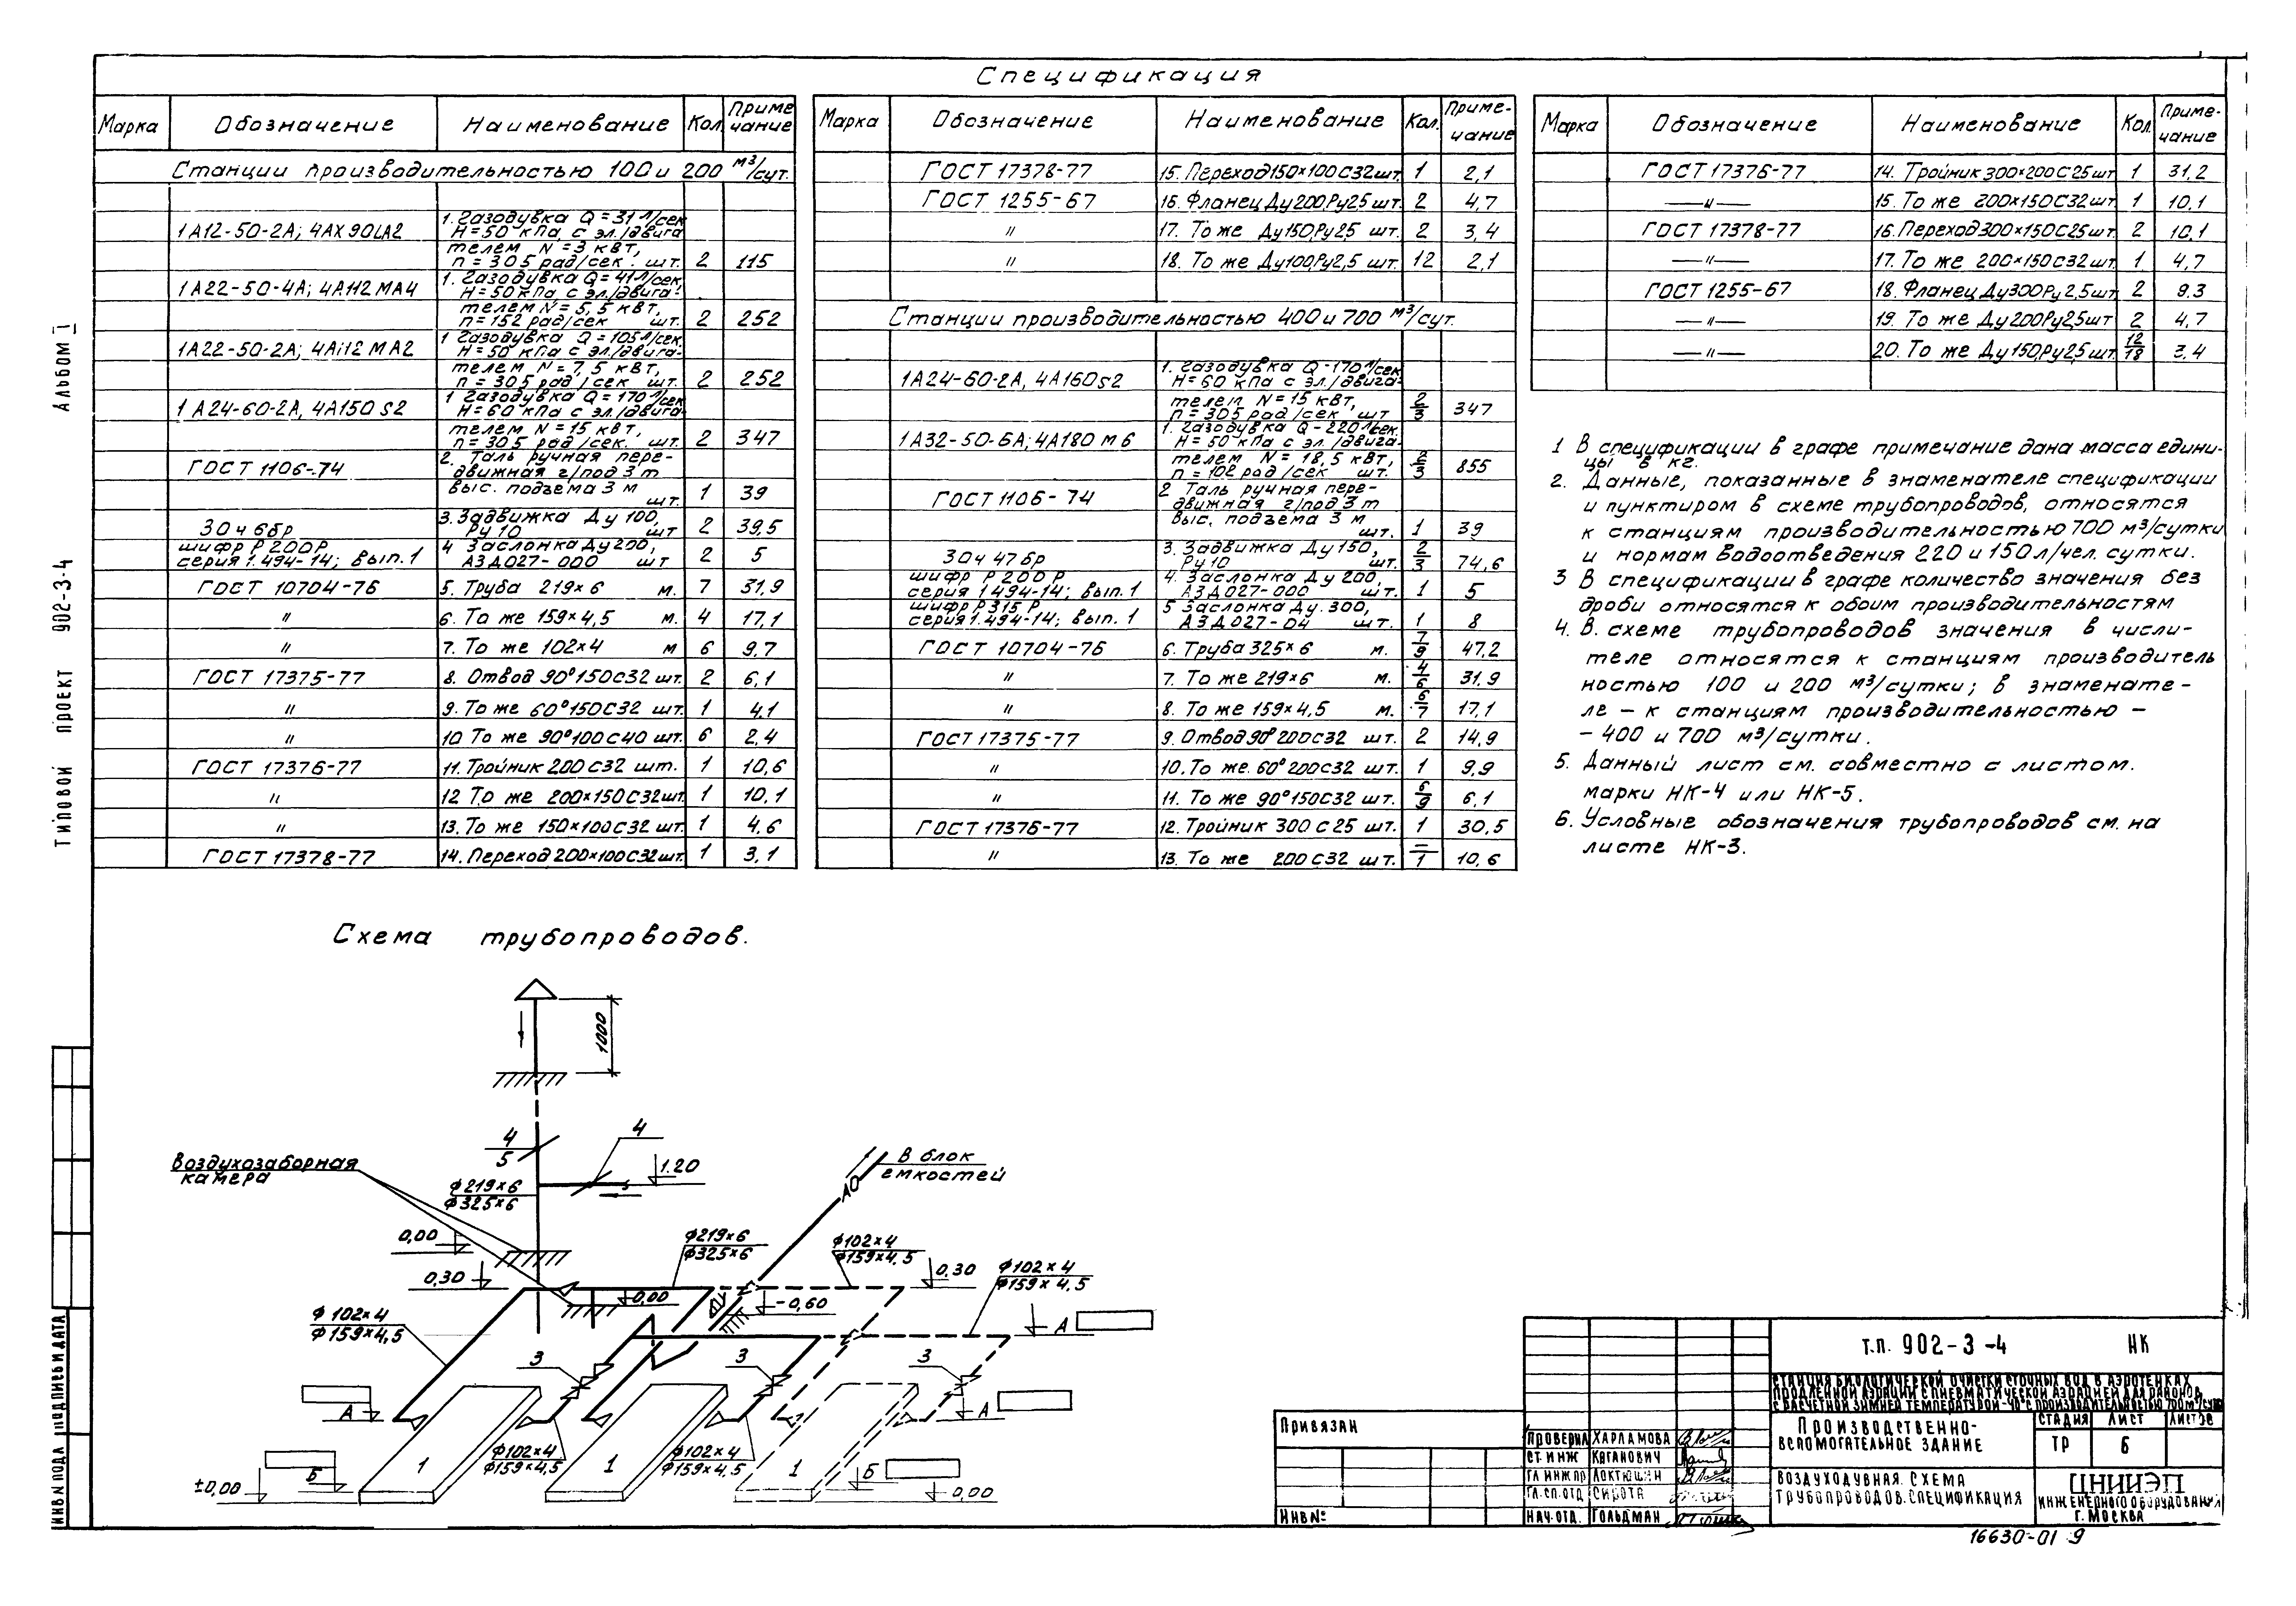 Спецификация
Марка Обозначение Наименование Кол. Приме
чание
Станции производительностью 100 и 200 м³/сут.
1А12-50-2А; 4АХ90LА2 1. Газодувка Q = 31 л/сек
H = 50 кПа с эл./двига
телем N = 3 кВт,
n = 305 рад/сек. шт. 2 115
1А22-50-4А; 4А112МА4 1. Газодувка Q = 41 л/сек,
H = 50 кПа с эл./двига-
телем N = 5,5 кВт,
n = 152 рад/сек шт. 2 252
1А22-50-2А; 4А112МА2 1 Газодувка Q = 105 л/сек,
H = 50 кПа с эл./двига-
телем N = 7,5 кВт,
n = 305 рад/сек шт. 2 252
1А24-60-2А, 4А150S2 1 Газодувка Q = 170 л/сек
H = 60 кПа с эл./двига-
телем N = 15 кВт,
n = 305 рад/сек. шт. 2 347
ГОСТ 1106-74 2. Таль ручная пере-
движная г/под 3 т
выс. подъема 3 м
шт. 1 39
30ч6бр 3. Задвижка Ду 100,
Ру 10 шт 2 39,5
шифр Р 200Р
серия 1.494-14; вып. 1 4 Заслонка Ду 200,
АЗД027-000 шт 2 5
ГОСТ 10704-76 5. Труба 219×6 м. 7 31,9
" 6. То же 159×4,5 м. 4 17,1
" 7. То же 102×4 м 6 9,7
ГОСТ 17375-77 8. Отвод 90°150С32 шт. 2 6,1
" 9. То же 60°150С32 шт. 1 4,1
" 10 То же 90°100С40 шт. 6 2,4
ГОСТ 17376-77 11. Тройник 200С32 шт. 1 10,6
" 12 То же 200×150С32 шт. 1 10,1
" 13. То же 150×100С32 шт. 1 4,6
ГОСТ 17378-77 14. Переход 200×100С32 шт. 1 3,1
Марка Обозначение Наименование Кол. Приме-
чание
ГОСТ 17378-77 15. Переход 150×100С32 шт. 1 2,1
ГОСТ 1255-67 16. Фланец Ду200,Ру2,5 шт. 2 4,7
" 17. То же Ду150,Ру2,5 шт. 2 3,4
" 18. То же Ду100,Ру2,5 шт. 12 2,1
Станции производительностью 400 и 700 м³/сут.
1А24-60-2А, 4А160S2 1. Газодувка Q-170 л/сек
H = 60 кПа с эл./двига-
телем N = 15 кВт,
n = 305 рад/сек шт 2/3 347
1А32-50-6А; 4А180 М6 1. Газодувка Q-220 л/сек.
H = 50 кПа с эл./двига-
телем N = 18,5 кВт,
n = 102 рад/сек шт. 2/3 855
ГОСТ 1106-74 2 Таль ручная пере-
движная г/под 3 т
выс. подъема 3 м
шт. 1 39
30ч47бр 3. Задвижка Ду 150,
Ру 10 шт. 2/3 74,6
шифр Р 200 Р
серия 1 494-14; вып. 1 4. Заслонка Ду 200,
АЗД027-000 шт. 1 5
шифр Р 315 Р
серия 1.494-14; вып. 1 5 Заслонка Ду. 300,
АЗД027-04 шт. 1 8
ГОСТ 10704-76 6. Труба 325×6 м. 7/9 47,2
" 7. То же 219×6 м. 4/6 31,9
" 8. То же 159×4,5 м. 6/7 17,1
ГОСТ 17375-77 9. Отвод 90°200С32 шт. 2 14,9
" 10. То же. 60°200С32 шт. 1 9,9
" 11. То же 90°150С32 шт. 6/9 6,1
ГОСТ 17376-77 12. Тройник 300 С25 шт. 1 30,5
" 13. То же 200С32 шт. –/1 10,6
Марка Обозначение Наименование Кол. Приме-
чание
ГОСТ 17376-77 14. Тройник 300×200С25 шт 1 31,2
—"— 15. То же 200×150С32 шт. 1 10,1
ГОСТ 17378-77 16. Переход 300×150С25 шт. 2 10,1
—"— 17. То же 200×150С32 шт. 1 4,7
ГОСТ 1255-67 18. Фланец Ду300Ру2,5 шт 2 9.3
—"— 19. То же Ду200Ру2,5 шт 2 4,7
—"— 20. То же Ду150,Ру2,5 шт. 12/18 3.4
1 В спецификации в графе примечание дана масса едини-
цы в кг.
2. Данные, показанные в знаменателе спецификации
и пунктиром в схеме трубопроводов, относятся
к станциям производительностью 700 м³/сутки
и нормам водоотведения 220 и 150 л/чел. сутки.
3 В спецификации в графе количество значения без
дроби относятся к обоим производительностям
4. В. схеме трубопроводов значения в числи-
теле относятся к станциям производитель
ностью 100 и 200 м³/сутки; в знаменате-
ле – к станциям производительностью –
– 400 и 700 м³/сутки.
5. Данный лист см. совместно с листом.
марки НК-4 или НК-5.
6. Условные обозначения трубопроводов см. на
листе НК-3.
Альбом I
Типовой проект 902-3-4
Схема трубопроводов.
1000
4
5
4
1.20
Воздухозаборная
камера
ф219×6
ф325×6
В блок
емкостей
АО
0,00
0,30
ф219×6
ф325×6
ф102×4
ф159×4,5
0.30
ф102×4
ф159×4,5
0,00
-0,60
А
ф102×4
ф159×4,5
3
3
3
А
А
1
1
1
ф102×4
ф159×4,5
ф102×4
ф159×4,5
Б
Б
±0,00
0,00
Инв N подл Подпись и дата
Привязан
Инв №
Проверил Харламова
Ст. инж Каганович
Гл инж пр Локтюшин
Гл. сп. отд Сирота
Нач. отд. Гольдман
т.п. 902-3-4 НК
Станция биологической очистки сточных вод в аэротенках
продленной аэрации с пневматической аэрацией для районов
с расчетной зимней температурой -40°с производительностью 700 м³/сут
Производственно-
вспомогательное здание
Стадия Лист Листов
ТР 6
Воздуходувная. Схема
трубопроводов. Спецификация
ЦНИИЭП
инженерного оборудования
г. Москва
16630-01 9